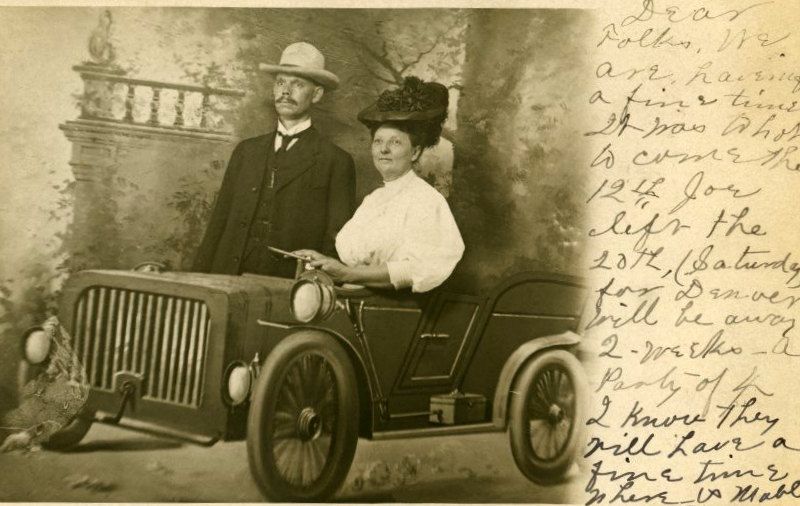 Dear
Folks, We
are, having
a fine time
It was to hot
to come the
12th Joe
left the
20th, (Saturday
for Denver
Will be away
2-weeks - a
Party of 4
I know they
will have a
fine time
Mabl